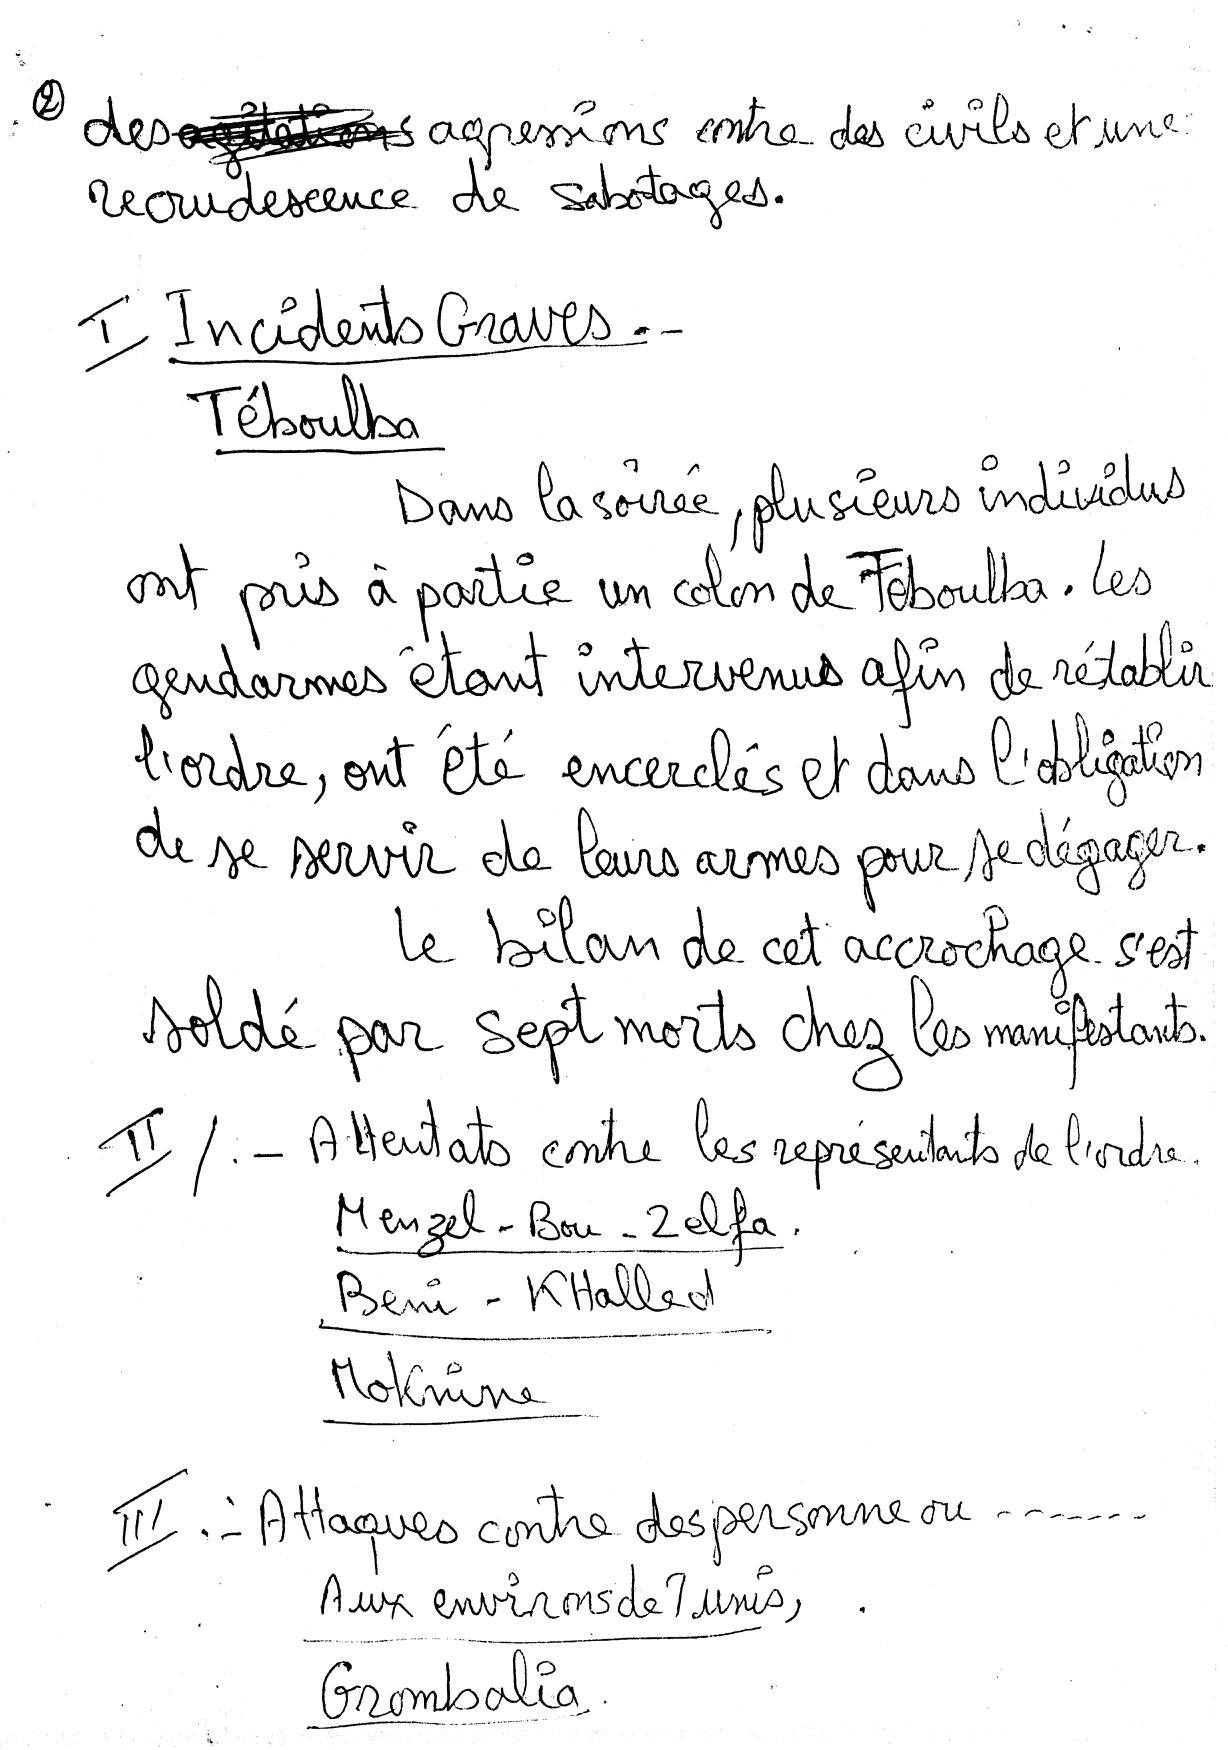 ② des agitations agressions contre des civils et une
recrudescence de sabotages.
I Incidents Graves.-
Téboulba
Dans la soirée, plusieurs individus
ont pris à partie un colon de Téboulba. Les
gendarmes étant intervenus afin de rétablir
l'ordre, ont été encerclés et dans l'obligation
de se servir de leurs armes pour se dégager.
Le bilan de cet accrochage s'est
soldé par sept morts chez les manifestants.
II /.- Attentats contre les représentants de l'ordre.
Menzel-Bou-Zelfa.
Beni-KHalled
Moknine
III .- Attaques contre des personne ou -------
Aux environs de Tunis,
Grombalia.